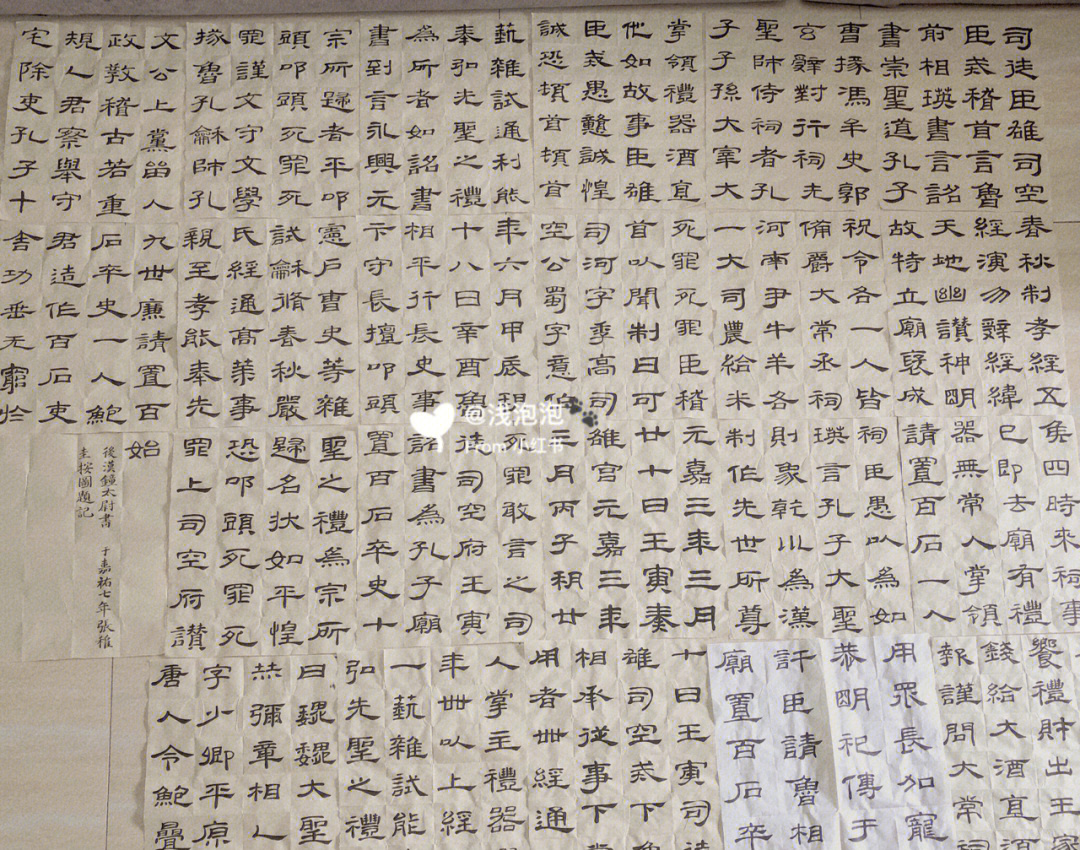 司徒臣雄司空
臣戒稽首言魯
前相瑛書言詔
書崇聖道孔子
曹掾馮牟史郭
玄辭對行祠先
聖師侍祠者孔
子子孫大宰大
掌領禮器酒直
他如故事臣雄
臣戒愚戇誠惶
誠恐頓首頓首
藝雜試通利能
奉弘先聖之禮
為所者如詔書
書到言永興元
宗所歸者平叩
頭叩頭死罪死
罪謹文守文學
掾魯孔龢師孔
文公上黨留人
政教稽古若重
規人君察舉守
宅除吏孔子十
春秋制孝經五
經演易辭經緯
天地幽讚神明
故特立廟褒成
祝令各一人皆
備爵大常丞祠
河南尹牛羊各
一大司農給米
死罪死罪臣稽
首以聞制曰可
司河字季高司
空公蜀字意伯
年六月甲辰朔
十八日辛酉魯
相平行長史事
卞守長擅叩頭
憲戶曹史等雜
試龢脩春秋嚴
氏經通高第事
親至孝能奉先
九世廉請置百
石卒史一人鮑
君造作百石吏
舍功垂无窮於
侯四時來祠事
已即去廟有禮
器無常人掌領
請置百石一人
祠臣愚以為如
瑛言孔子大聖
則象乾川為漢
制作先世所尊
元嘉三年三月
廿十日壬寅奏
雒官元嘉三年
三月丙子朔廿
死罪敢言之司
徒司空府壬寅
詔書為孔子廟
置百石卒史十
聖之禮為宗所
歸名狀如平惶
恐叩頭死罪死
罪上司空府讚
始
後漢鍾太尉書 于嘉祐七年張稚
圭按圖題記
饗禮財出王家
錢給大酒直須
報謹問大常祠
用眾長加寵
恭明祀傳于
許臣請魯相
廟置百石卒
十日壬寅司徒
雄司空戒下魯
相承從事下當
用者卌經通
人掌主禮器
年卌以上經
一藝雜試能
弘先聖之禮
曰巍巍大聖
赫彌章相乙
字少卿平原
唐人令鮑疊
@浅泡泡
From 小红书